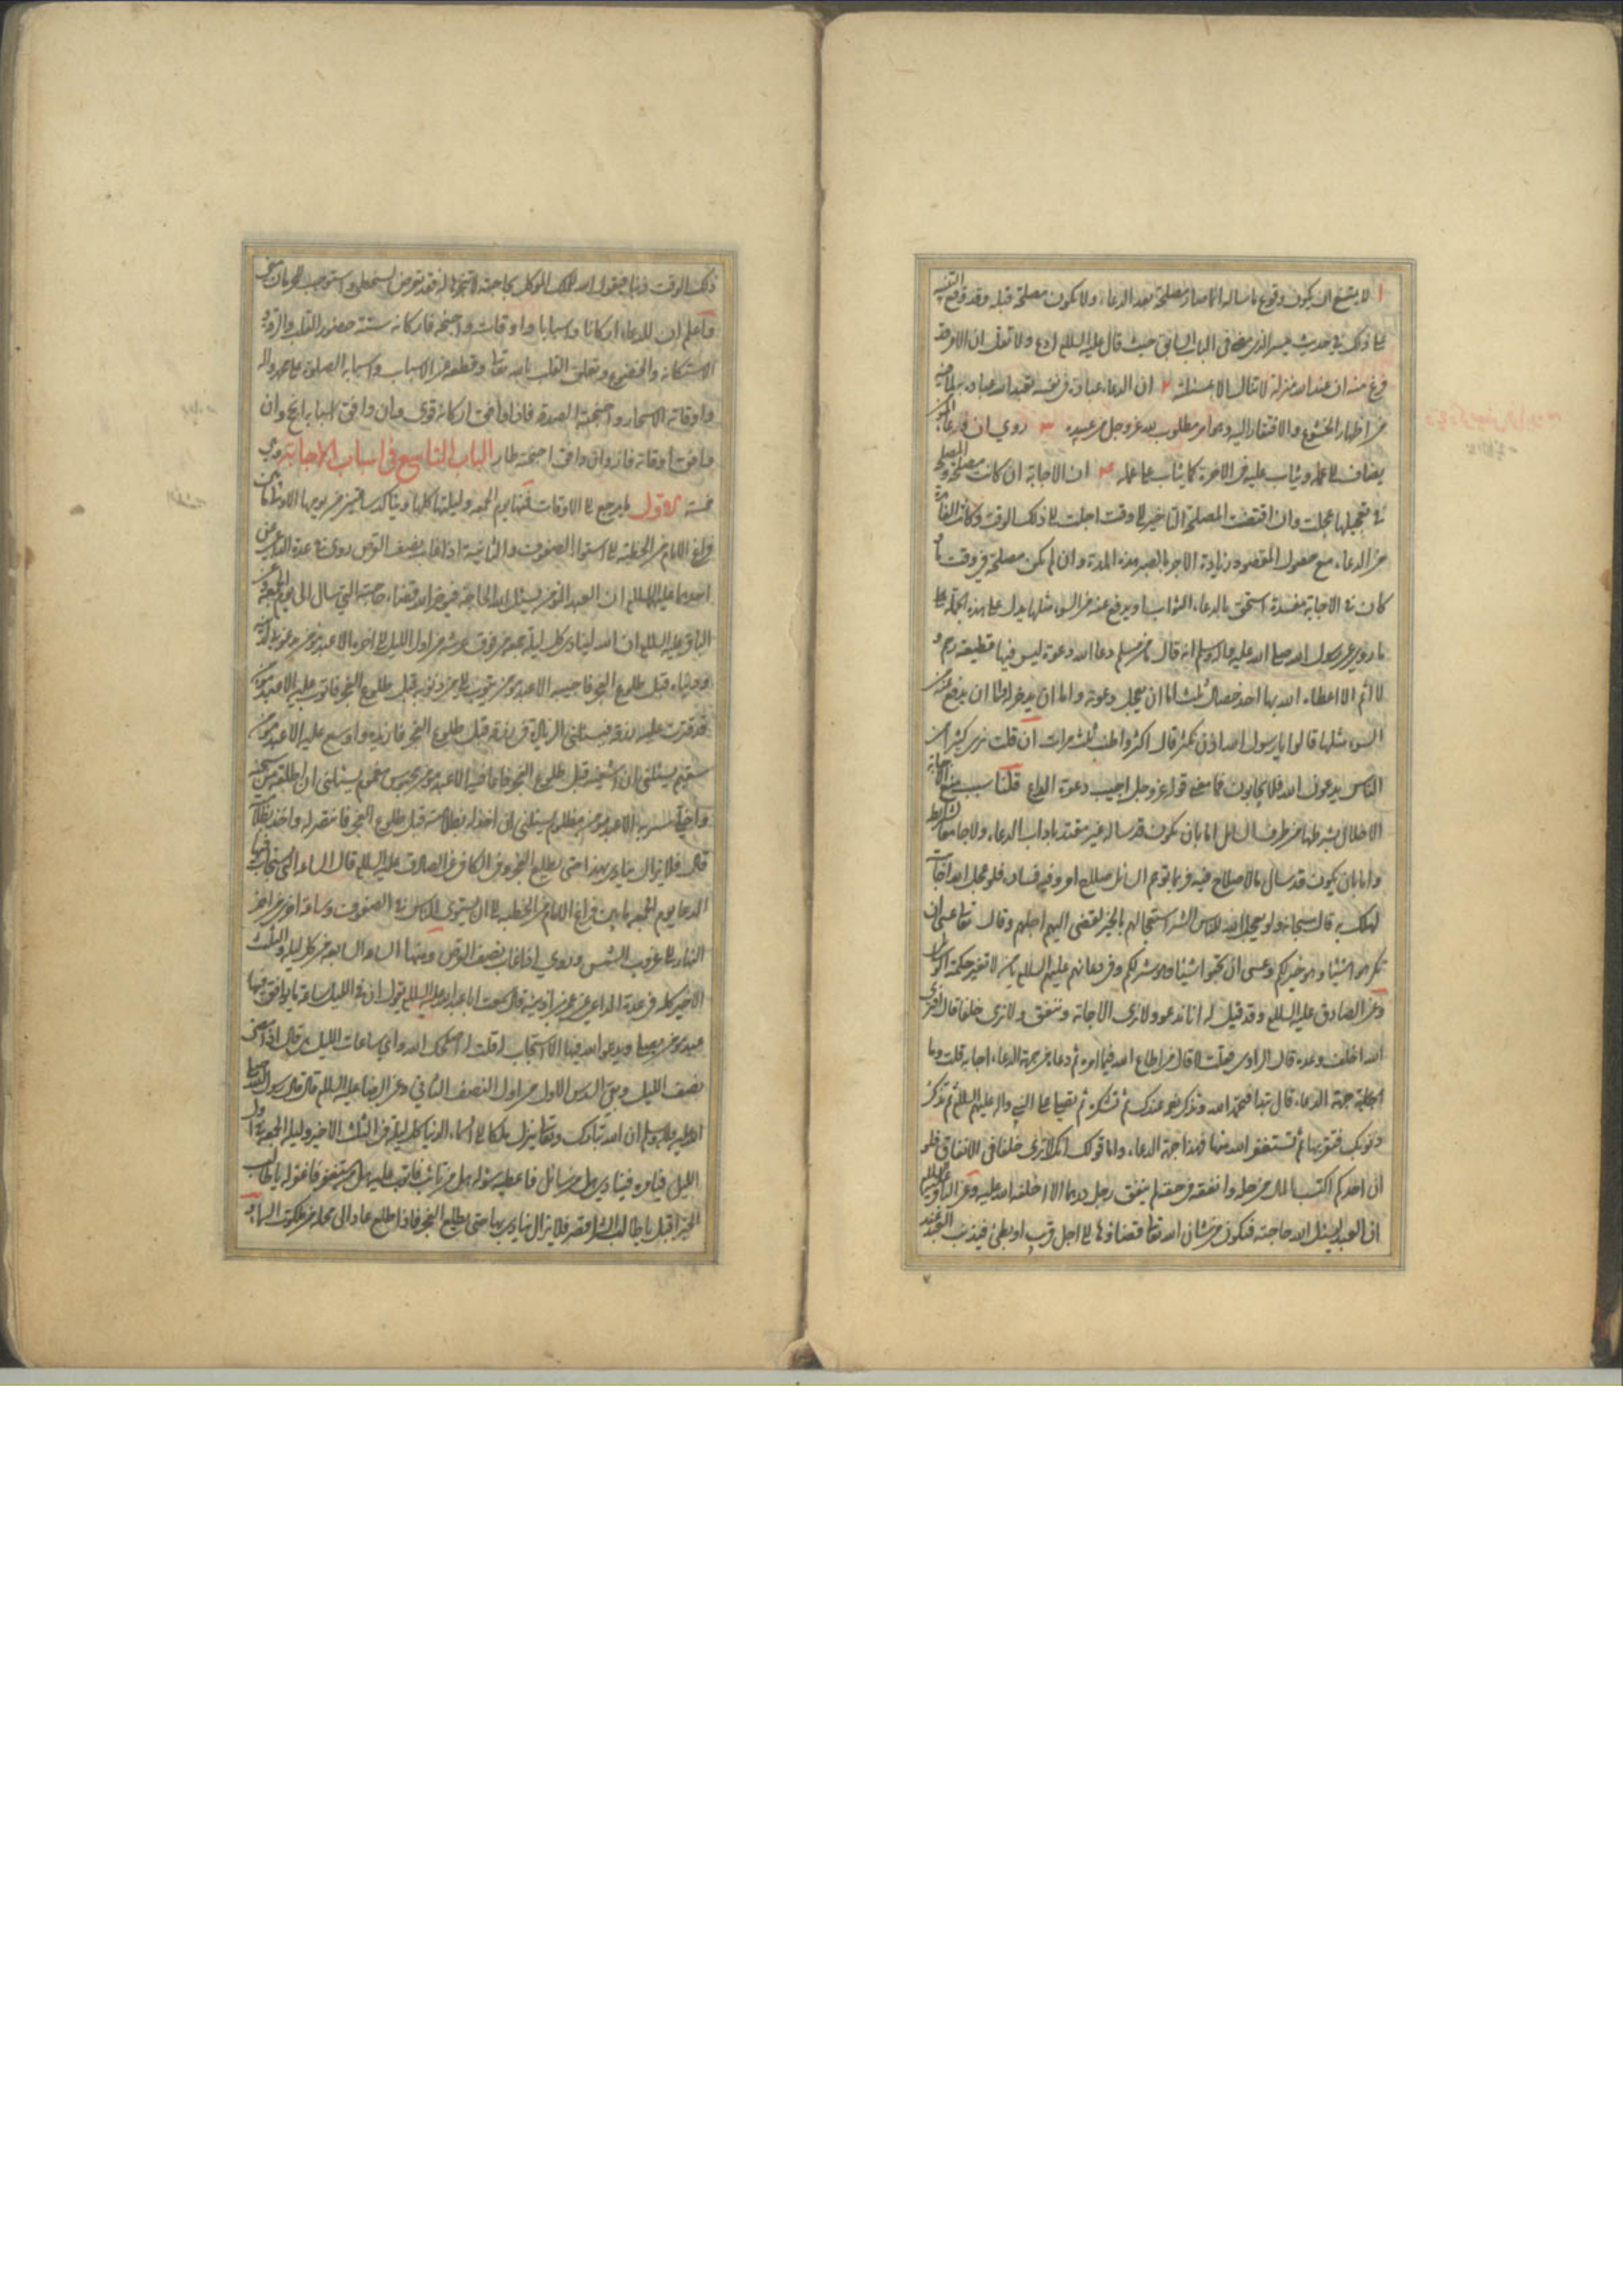 ا لا يمتنع ان يكون وقوع ما ساله انما صار مصلحة بعد الدعاء ولا يكون مصلحة قبله وقد وقع التنبيه
على ذلك في حديث ميسر الذي مضى في الباب السابق حيث قال عليه السلام ادع ولا تقل ان الامر قد
فرغ منه ان عند الله منزلة لا تنال الا بمسئلة ٢ ان الدعاء عبادة في نفسه تعبد الله عباده به لما فيه
من اظهار الخشوع والافتقار اليه وهو امر مطلوب لله عز وجل من عبيده ٣ روي ان دعاء المؤمن
يضاف الى عمله ويثاب عليه في الاخرة كما يثاب على عمله ٤ ان الاجابة ان كانت مصلحة والمصلحة
في تعجيلها عجلت وان اقتضت المصلحة التاخير الى وقت اجلت الى ذلك الوقت وكانت الفائدة
من الدعاء مع حصول المقصود زيادة الاجر بالصبر هذه المدة وان لم يكن مصلحة في وقت ما
كان في الاجابة مفسدة استحق بالدعاء الثواب او يدفع عنه من السوء مثلها يدل على هذه الجملة
ما روي عن رسول الله صلى الله عليه واله وسلم انه قال ما من مسلم دعا الله دعوة ليس فيها قطيعة رحم و
لا اثم الا اعطاه الله بها احد خصال ثلث اما ان يعجل دعوته واما ان يدخر له واما ان يدفع عنه من
السوء مثلها قالوا يا رسول الله اذن نكثر قال اكثروا ثلث مرات ان قلت نرى كثيرا من
الناس يدعون الله فلا يجابون فما معنى قوله عز وجل اجيب دعوة الداع قلنا سبب منع الاجابة
الاخلال بشرطها من طرف السائل اما بان يكون قد سال غير متقيد باداب الدعاء ولا جامعا لشرايطه
واما بان يكون قد سال ما لا صلاح فيه فربما توهم السائل صلاح امر وفيه فساد فلو عجل الله اجابته
لهلك به قال سبحانه ولو يعجل الله للناس الشر استعجالهم بالخير لقضي اليهم اجلهم وقال تعالى عسى ان
تكرهوا شيئا وهو خير لكم وعسى ان تحبوا شيئا وهو شر لكم وفي دعائهم عليهم السلام يا من لا تغير حكمته الوسائل
وعن الصادق عليه السلام وقد قيل له انا ندعو ولا نرى الاجابة وننفق ولا نرى خلفا قال افترى
الله اخلف وعده قال الراوي فقلت لا قال من اطاع الله فيما امره ثم دعا من جهة الدعاء اجابه قلت وما
جهة الدعاء قال تبدا فتحمد الله وتذكر نعمه عندك ثم تشكره ثم تصلي على النبي واله عليهم السلام ثم تذكر
ذنوبك فتقر بها ثم تستغفر الله منها فهذا جهة الدعاء واما قولك انك لا ترى خلفا في الانفاق فلو
ان احدكم اكتسب المال من حله وانفقه في حقه لم ينفق رجل درهما الا اخلف الله عليه وعن الباقر عليه السلام
ان العبد ليسئل الله حاجته فيكون من شان الله تعالى قضاؤها الى اجل قريب او بطيء فيذنب العبد عند
٧
ذلك الوقت ذنبا فيقول الله للملك الموكل بحاجته لا تنجزها له فقد تعرض لسخطي واستوجب الحرمان مني
واعلم ان للدعاء اركانا واسبابا واوقات واجنحة فاركانه ستة حضور القلب والرقة و
الاستكانة والخضوع وتعلق القلب بالله تعالى وقطعه من الاسباب واسبابه الصلوة على محمد واله
واوقاته الاسحار واجنحته الصدق فاذا وافق اركانه قوى وان وافق اسبابه انجح وان
وافق اوقاته فاز وان وافق اجنحته طار الباب التاسع في اسباب الاجابة وهي
خمسة الاول ما يرجع الى الاوقات فمنها يوم الجمعة وليلتها كلها ويتاكد ساعتين من يومها الاولى ما بين
فراغ الامام من الخطبة الى استواء الصفوف والثانية اذا غاب نصف القرص روى في عدة الداعي عن
احدهما عليهما السلام ان العبد المؤمن ليسئل الله الحاجة فيؤخر الله قضاء حاجته التي سال الى يوم الجمعة وعن
الباقر عليه السلام ان الله لينادي كل ليلة جمعة من فوق عرشه من اول الليل الى اخره الا عبد مؤمن يدعوني لدينه
ودنياه قبل طلوع الفجر فاجيبه الا عبد مؤمن يتوب الى من ذنوبه قبل طلوع الفجر فاتوب عليه الا عبد مؤمن
قد قترت عليه رزقه فيسئلني الزيادة في رزقه قبل طلوع الفجر فازيده واوسع عليه الا عبد مؤمن
سقيم يسئلني ان اشفيه قبل طلوع الفجر فاعافيه الا عبد مؤمن محبوس مغموم يسئلني ان اطلقه من سجنه
واخلي سربه الا عبد مؤمن مظلوم يسئلني ان اخذ له بظلامته قبل طلوع الفجر فانتصر له واخذ بظلامته
قال فلا يزال ينادي بهذا حتى يطلع الفجر وفي الكافي عن الصادق عليه السلام قال الساعة التي يستجاب فيها
الدعاء يوم الجمعة ما بين فراغ الامام من الخطبة الى ان يستوى الناس في الصفوف وساعة اخرى من اخر
النهار الى غروب الشمس وروي اذا غاب نصف القرص ومنها الساعة السابعة من كل ليلة والثلث
الاخير كله في عدة الداعي عن عمر بن اذينة قال سمعت ابا عبد الله عليه السلام يقول ان في الليل ساعة ما يوافق فيها
عبد مؤمن يصلي ويدعو الله فيها الا استجاب له قلت له اصلحك الله واي ساعات الليل هي قال اذا مضى
نصف الليل وبقي السدس الاول من اول النصف الثاني وعن الرضا عليه السلام قال قال رسول الله صلى
الله عليه واله وسلم ان الله تبارك وتعالى ينزل ملكا الى السماء الدنيا كل ليلة في الثلث الاخير وليلة الجمعة في اول
الليل فيامره فينادي هل من سائل فاعطيه سؤله هل من تائب فاتوب عليه هل من مستغفر فاغفر له يا طالب
الخير اقبل يا طالب الشر اقصر فلا يزال ينادي بها حتى يطلع الفجر فاذا طلع عاد الى محله من ملكوت السماء